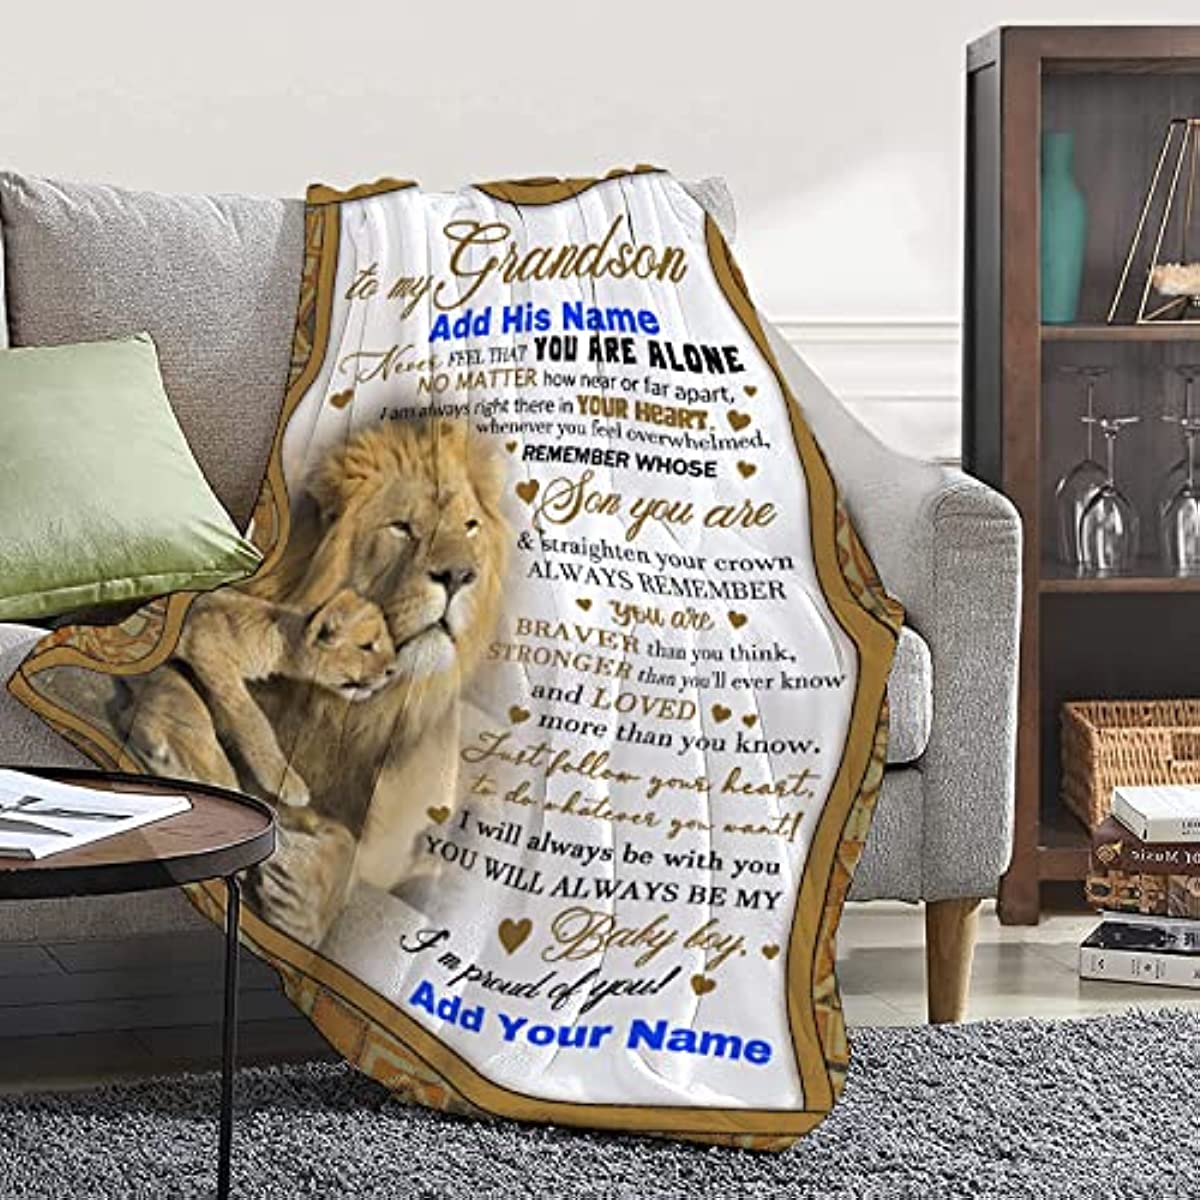 to my Grandson
Add His Name
Never FEEL THAT YOU ARE ALONE
NO MATTER how near or far apart,
I am always right there in YOUR HEART.
whenever you feel overwhelmed,
REMEMBER WHOSE
Son you are
& straighten your crown
ALWAYS REMEMBER
you are
BRAVER than you think,
STRONGER than you'll ever know
and LOVED
more than you know.
Just follow your heart,
to do whatever you want!
I will always be with you
YOU WILL ALWAYS BE MY
Baby boy.
I'm proud of you!
Add Your Name
of Music